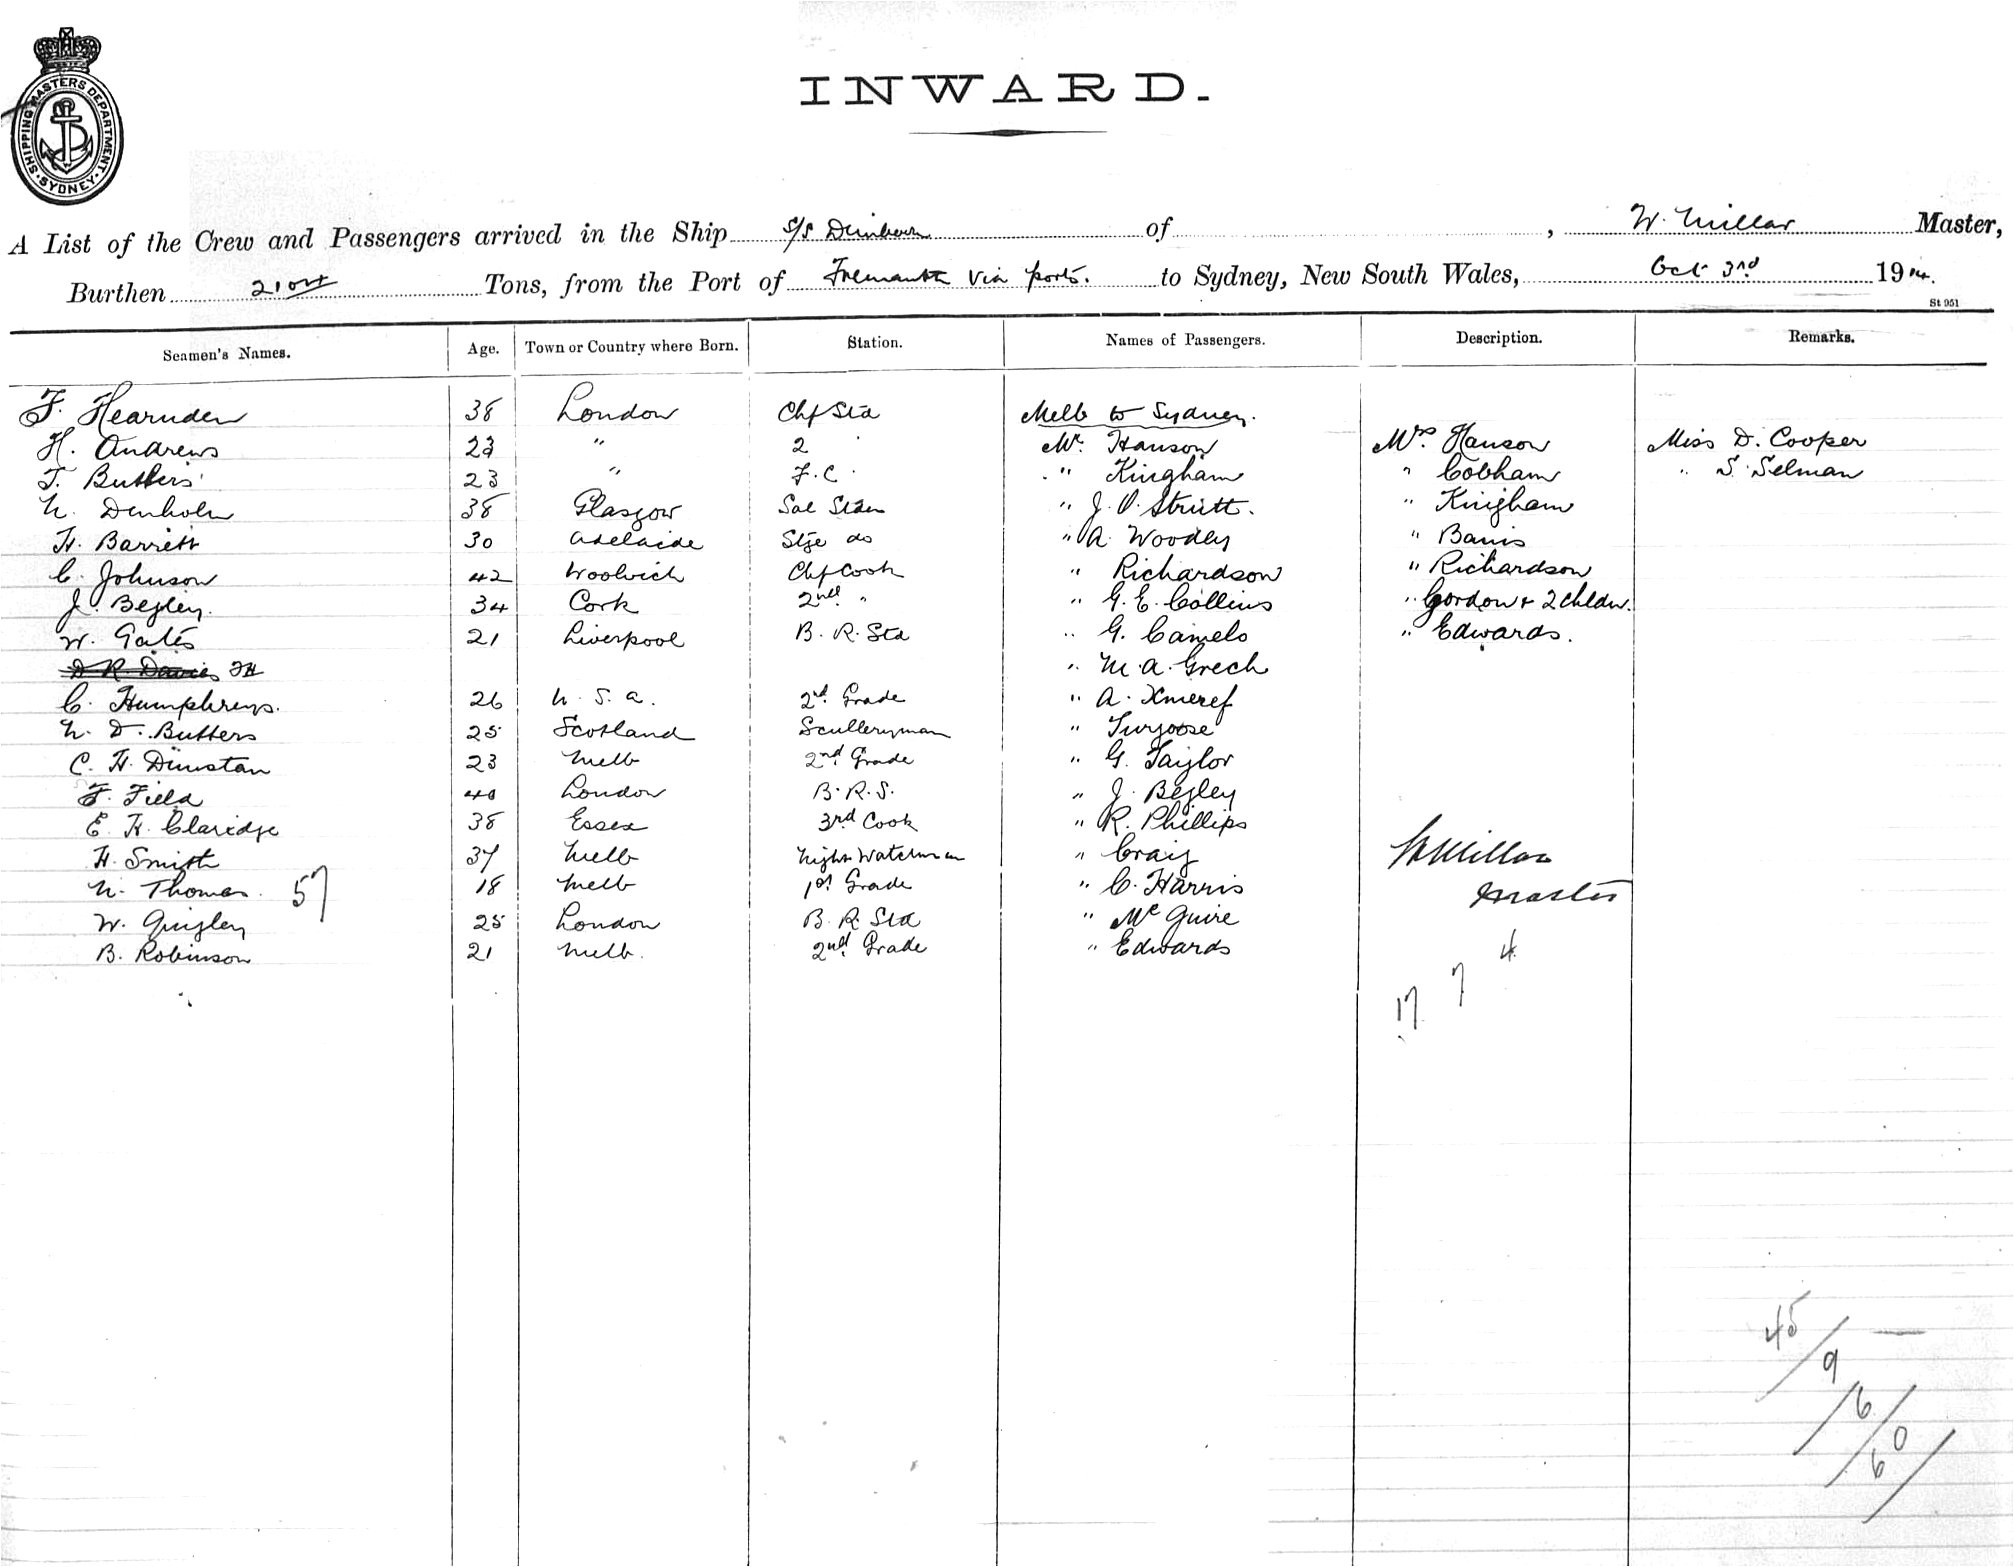 SHIPPING MASTERS DEPARTMENT. SYDNEY
INWARD.
A List of the Crew and Passengers arrived in the Ship S/S of , W. Millar Master,
Burthen Tons, from the Port of Fremantle via ports. to Sydney, New South Wales, Oct 3rd 1914.
St 951
Seamen's Names. Age. Town or Country where Born. Station. Names of Passengers. Description. Remarks.
F. Hearnden 38 London Chf Std Melb to Sydney.
H. Andrews 23 " 2 " Mr. Hanson Mrs. Hanson Miss D. Cooper
T. Butters 23 " F. C. " Kingham " Cobham " S. Selman
N. Denholm 38 Glasgow Sal " J. O. Strutt. " Kingham
H. Barrett 30 Adelaide Stge do " A. Woodley "
C. Johnson 42 Woolwich Chf Cook " Richardson " Richardson
J. Begley. 34 Cork 2nd " " G. E. Collins " Gordon + 2 chldn.
W. Gates 21 Liverpool B. R. Std " G. Camelo " Edwards.
D R Davies " M. A. Grech
C. Humphreys. 26 U. S. A. 2nd Grade " A. Xmeref
N. D. Butters 25 Scotland Sculleryman " Turgoose
C. H. Dunstan 23 Melb 2nd Grade " G. Taylor
F. Field 40 London B. R. S. " J. Begley
E. H. Claridge 38 Essex 3rd Cook " R. Phillips
H. Smith 37 Melb Night Watchman " Craig W Millar
N. Thomas. 57 18 Melb 1st Grade " C. Harris Master
W. Quigley 25 London B. R. Std " Mc Guire
B. Robinson 21 Melb. 2nd Grade " Edwards 4
17 7
45 / —
9
/ 6 /
0
6 /